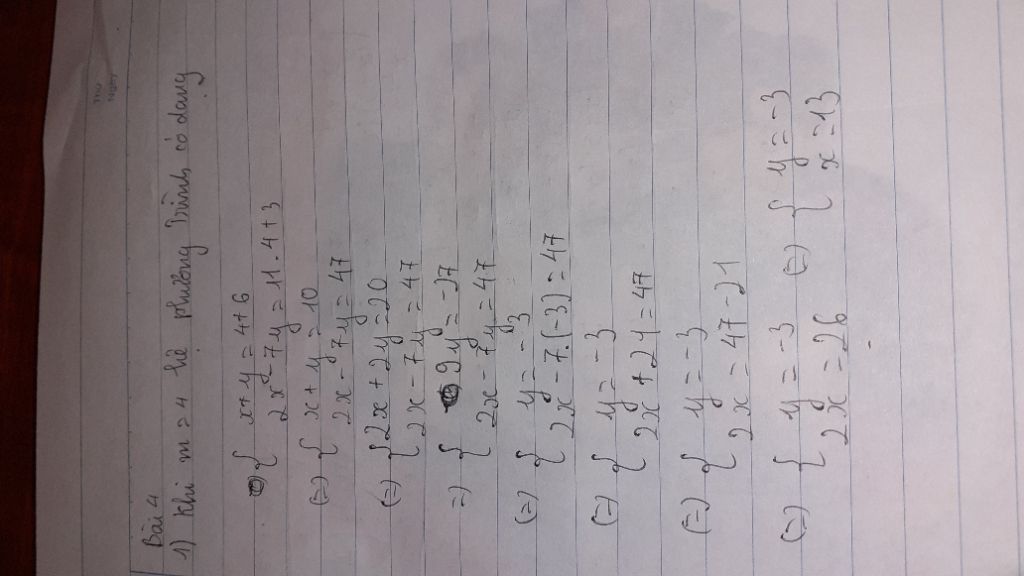 Thứ
Ngày
Bài 4
1) Khi m = 4 hệ phương trình có dạng
{ x + y = 4+6
2x - 7y = 11.4+3
(=) { x + y = 10
2x - 7y = 47
(=) { 2x + 2y = 20
2x - 7y = 47
=) { 9y = -27
2x - 7y = 47
(=) { y = -3
2x - 7.(-3) = 47
(=) { y = -3
2x + 21 = 47
(=) { y = -3
2x = 47 - 21
(=) { y = -3 (=) { y = -3
2x = 26 x = 13